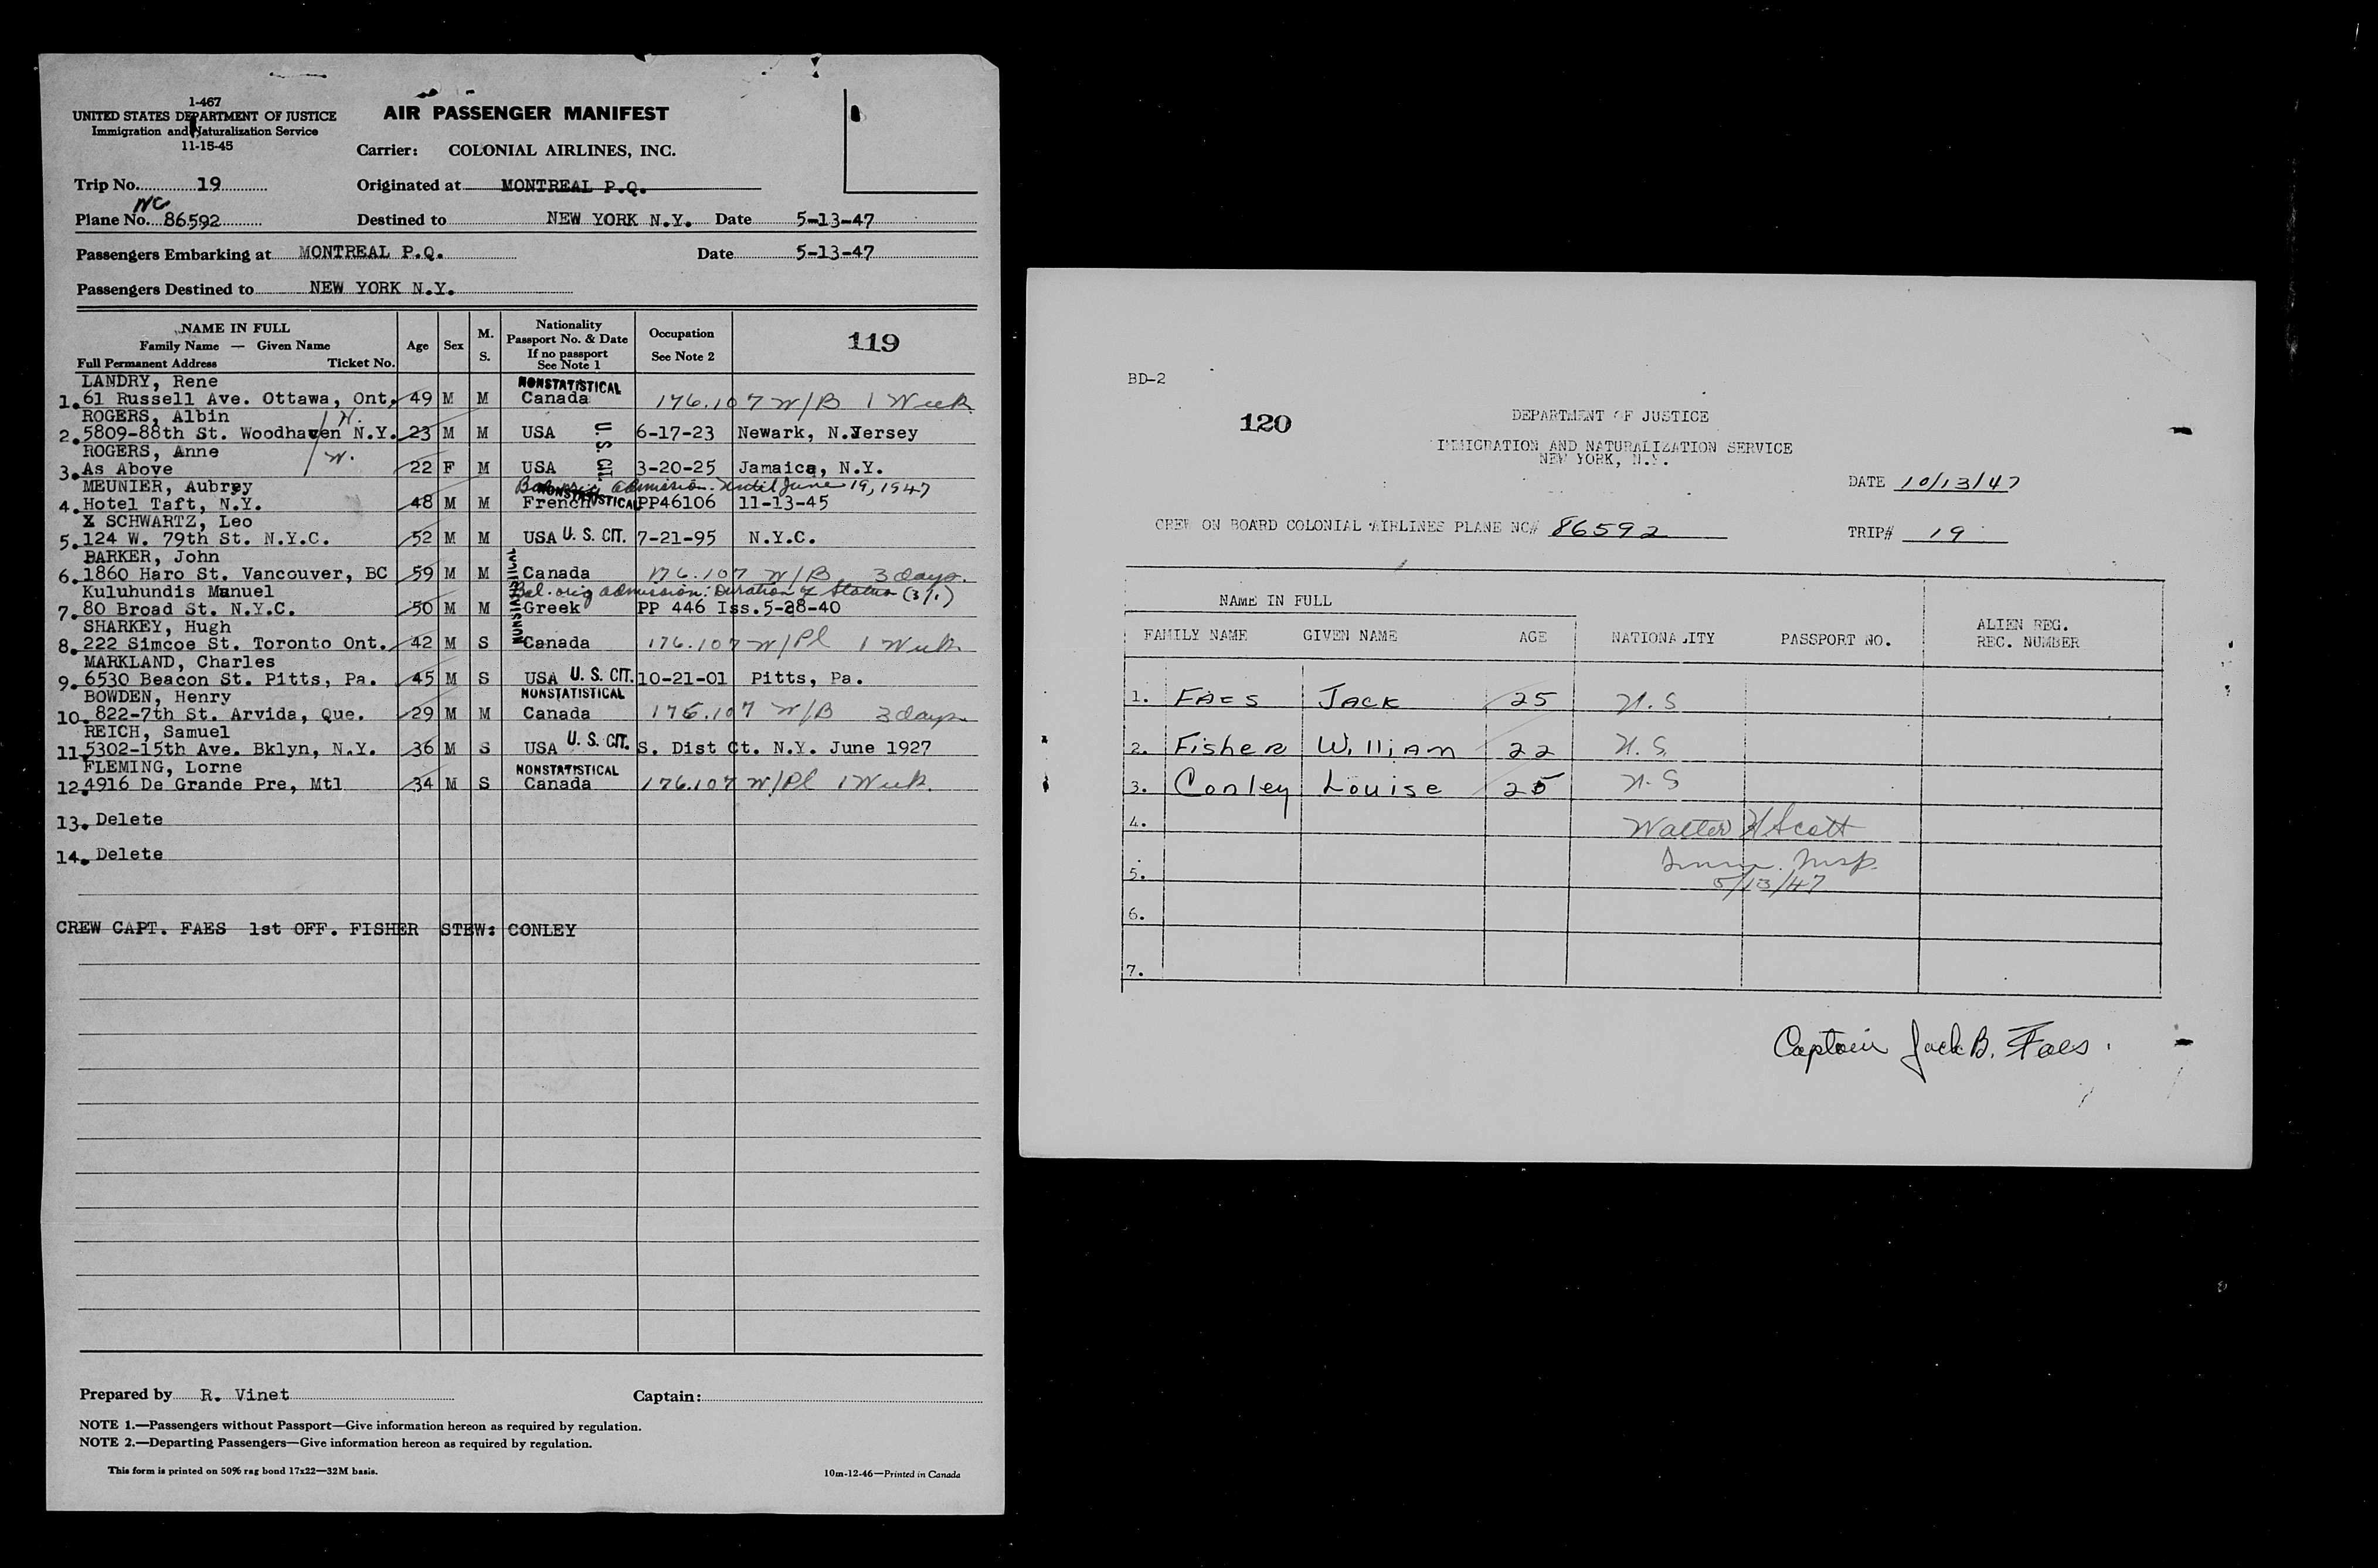 1-467
UNITED STATES DEPARTMENT OF JUSTICE
Immigration and Naturalization Service
11-15-45
AIR PASSENGER MANIFEST
Carrier: COLONIAL AIRLINES, INC.
Trip No. 19
Originated at MONTREAL P.Q.
NC
Plane No. 86592
Destined to NEW YORK N.Y. Date 5-13-47
Passengers Embarking at MONTREAL P.Q. Date 5-13-47
Passengers Destined to NEW YORK N.Y.
NAME IN FULL
Family Name — Given Name
Full Permanent Address Ticket No.
Age
Sex
M.
S.
Nationality
Passport No. & Date
If no passport
See Note 1
Occupation
See Note 2
119
LANDRY, Rene NONSTATISTICAL
1. 61 Russell Ave. Ottawa, Ont. 49 M M Canada 176.107 W/B 1 Week
ROGERS, Albin
2. 5809-88th St. Woodhaven N.Y. 23 M M USA U.S. CIT. 6-17-23 Newark, N.Jersey
ROGERS, Anne
3. As Above 22 F M USA 3-20-25 Jamaica, N.Y.
MEUNIER, Aubrey Bal. orig. admission. Until June 19, 1947
4. Hotel Taft, N.Y. 48 M M French NONSTATISTICAL PP46106 11-13-45
X SCHWARTZ, Leo
5. 124 W. 79th St. N.Y.C. 52 M M USA U. S. CIT. 7-21-95 N.Y.C.
BARKER, John
6. 1860 Haro St. Vancouver, BC 59 M M Canada 176.107 W/B 3 days.
Kuluhundis Manuel Bal. orig admission: Duration of Status (3/1)
7. 80 Broad St. N.Y.C. 50 M M Greek PP 446 Iss.5-28-40
NONSTATISTICAL
SHARKEY, Hugh
8. 222 Simcoe St. Toronto Ont. 42 M S Canada 176.107 W/Pl 1 Week
MARKLAND, Charles
9. 6530 Beacon St. Pitts, Pa. 45 M S USA U. S. CIT. 10-21-01 Pitts, Pa.
BOWDEN, Henry NONSTATISTICAL
10. 822-7th St. Arvida, Que. 29 M M Canada 176.107 W/B 3 days
REICH, Samuel
11. 5302-15th Ave. Bklyn, N.Y. 36 M S USA U. S. CIT. S. Dist Ct. N.Y. June 1927
FLEMING, Lorne NONSTATISTICAL
12. 4916 De Grande Pre, Mtl 34 M S Canada 176.107 W/Pl 1 Week.
13. Delete
14. Delete
CREW CAPT. FAES 1st OFF. FISHER STEW: CONLEY
Prepared by R. Vinet Captain:
NOTE 1.—Passengers without Passport—Give information hereon as required by regulation.
NOTE 2.—Departing Passengers—Give information hereon as required by regulation.
This form is printed on 50% rag bond 17x22—32M basis.
10m-12-46—Printed in Canada
BD-2
120
DEPARTMENT OF JUSTICE
IMMIGRATION AND NATURALIZATION SERVICE
NEW YORK, N.Y.
DATE 10/13/47
CREW ON BOARD COLONIAL AIRLINES PLANE NC# 86592 TRIP# 19
NAME IN FULL
FAMILY NAME GIVEN NAME AGE NATIONALITY PASSPORT NO. ALIEN REG.
REG. NUMBER
1. FAES JACK 25 U.S
2. Fisher William 22 U.S.
3. Conley Louise 25 U.S
4. Walter H Scott
Imm. Insp.
5.
5/13/47
6.
7.
Captain Jack B. Faes.